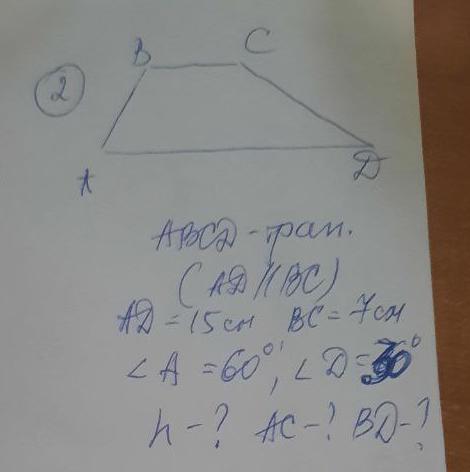 B C
2
A D
ABCD - трап.
(AD || BC)
AD = 15 см BC = 7 см
∠A = 60°, ∠D = 30°
h - ? AC - ? BD - ?